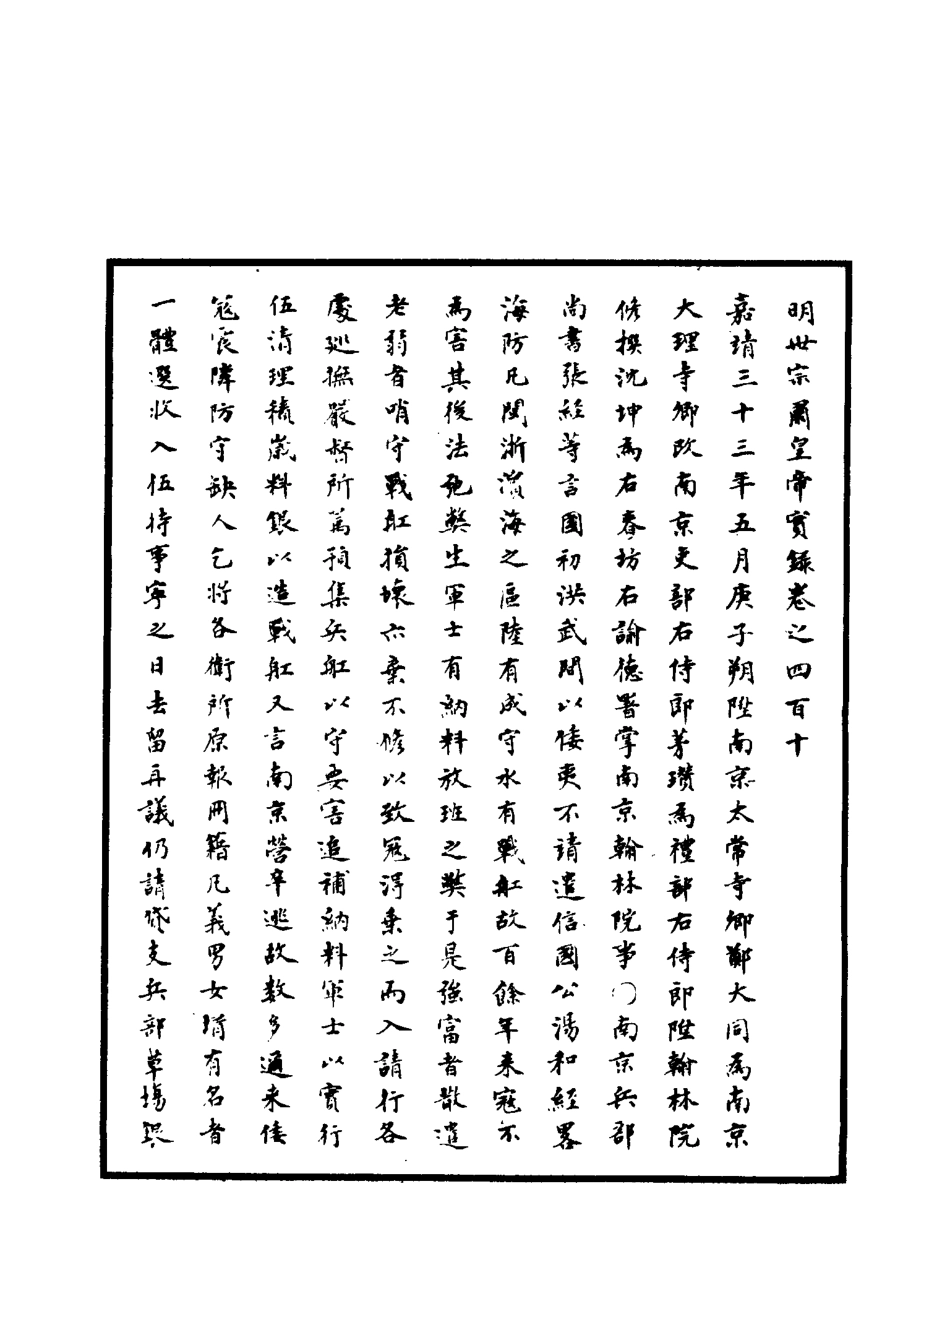 明世宗肅皇帝實錄卷之四百十
嘉靖三十三年五月庚子朔陞南京太常寺卿鄭大同為南京
大理寺卿改南京吏部右侍郎茅瓚為禮部右侍郎陞翰林院
修撰沈坤為右春坊右諭德署掌南京翰林院事○南京兵部
尚書張經等言國初洪武間以倭夷不請遣信國公湯和經畧
海防凡閩浙濱海之區陸有成守水有戰舡故百餘年来寇不
為害其後法弛弊生軍士有納料放班之弊于是強富者散遣
老弱者哨守戰舡損壞亦棄不修以致冦得乗之而入請行各
處廵撫嚴督所属預集兵舡以守要害追補納料軍士以實行
伍清理積歲料銀以造戰舡又言南京營卒逃故数多適来倭
冦宸障防守缺人乞将各衛所原報冊籍凡義男女壻有名者
一體選收入伍待事寧之日去留再議仍請貸支兵部草場銀